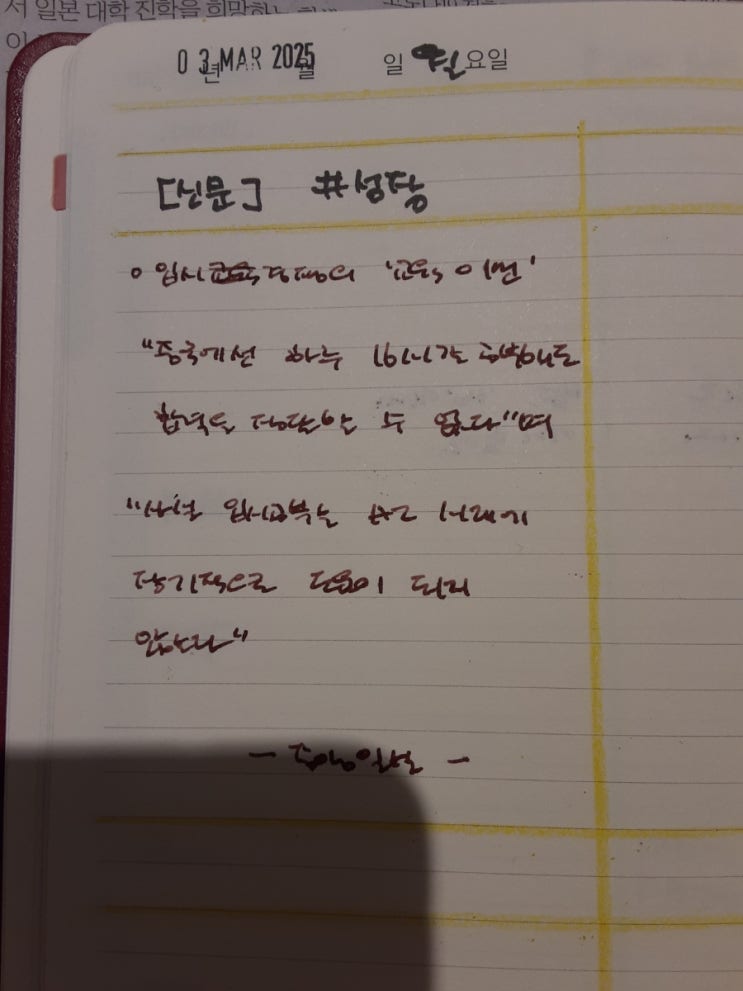 서 일본 대학 진학을 희망하는
이
03 MAR 2025
년 월 일 월요일
[신문] #성당
입시 경쟁의 '교육 이민'
"중국에선 하루 16시간 공부해도
합격을 장담할 수 없다"며
입시공부는
장기적으로 도움이 되지
않는다"
- 중앙일보 -